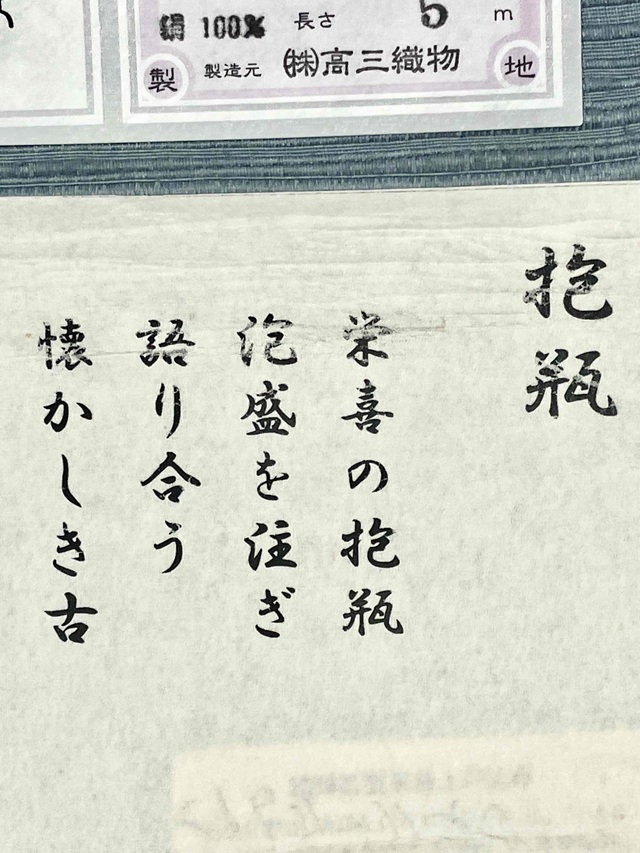 絹 100% 長さ 5 m
製 製造元 ㈱高三織物 地
抱瓶
栄喜の抱瓶
泡盛を注ぎ
語り合う
懐かしき古